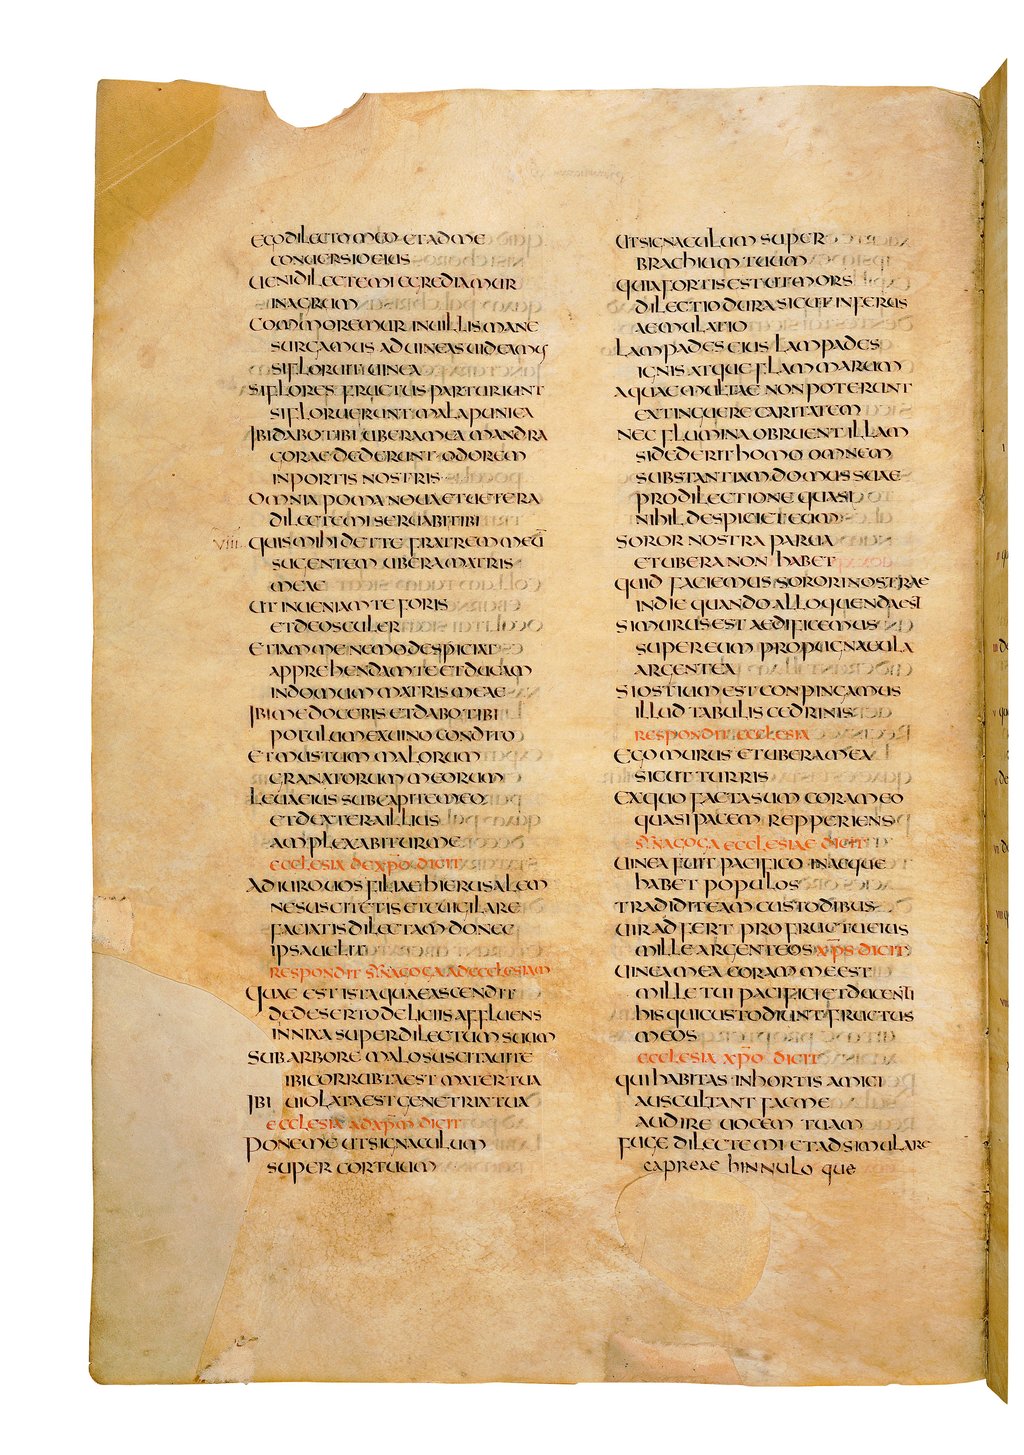 EGO DILECTO MEO ET AD ME
CONUERSIO EIUS
UENI DILECTE MI EGREDIAMUR
IN AGRUM
COMMOREMUR IN UILLIS MANE
SURGAMUS AD UINEAS UIDEAMUS
SI FLORUIT UINEA
SI FLORES FRUCTUS PARTURIUNT
SI FLORUERUNT MALA PUNICA
IBI DABO TIBI UBERA MEA MANDRA
GORAE DEDERUNT ODOREM
IN PORTIS NOSTRIS
OMNIA POMA NOUA ET UETERA
DILECTE MI SERUABI TIBI
VIII QUIS MIHI DET TE FRATREM MEŪ
SUGENTEM UBERA MATRIS
MEAE
UT INUENIAM TE FORIS
ET DEOSCULER
ET IAM ME NEMO DESPICIAT
APPREHENDAM TE ET DUCAM
IN DOMUM MATRIS MEAE
IBI ME DOCEBIS ET DABO TIBI
POCULUM EX UINO CONDITO
ET MUSTUM MALORUM
GRANATORUM MEORUM
LEUA EIUS SUB CAPITE MEO
ET DEXTERA ILLIUS
AMPLEXABITUR ME
ECCLESIA DE XP̄O DICIT
ADIURO UOS FILIAE HIERUSALEM
NE SUSCITETIS ET EUIGILARE
FACIATIS DILECTAM DONEC
IPSA UELIT
RESPONDIT SYNAGOGA AD ECCLESIAM
QUAE EST ISTA QUAE ASCENDIT
DE DESERTO DELICIIS AFFLUENS
INNIXA SUPER DILECTUM SUUM
SUB ARBORE MALO SUSCITAUI TE
IBI CORRUBTA EST MATER TUA
IBI UIOLATA EST GENETRIX TUA
ECCLESIA AD XP̄M DICIT
PONE ME UT SIGNACULUM
SUPER COR TUUM
UT SIGNACULUM SUPER
BRACHIUM TUUM
QUIA FORTIS EST UT MORS
DILECTIO DURA SICUT INFERUS
AEMULATIO
LAMPADES EIUS LAMPADES
IGNIS ATQUE FLAMMARUM
AQUAE MULTAE NON POTERUNT
EXTINGUERE CARITATEM
NEC FLUMINA OBRUENT ILLAM
SI DEDERIT HOMO OMNEM
SUBSTANTIAM DOMUS SUAE
PRO DILECTIONE QUASI
NIHIL DESPICIET EUM
SOROR NOSTRA PARUA
ET UBERA NON HABET
QUID FACIEMUS SORORI NOSTRAE
IN DIE QUANDO ALLOQUENDA EST
SI MURUS EST AEDIFICEMUS
SUPER EUM PROPUGNACULA
ARGENTEA
SI OSTIUM EST CONPINGAMUS
ILLUD TABULIS CEDRINIS
RESPONDIT ECCLESIA
EGO MURUS ET UBERA MEA
SICUT TURRIS
EX QUO FACTA SUM CORAM EO
QUASI PACEM REPPERIENS
SYNAGOGA ECCLESIAE DICIT
UINEA FUIT PACIFICO IN AEQUE
HABET POPULOS
TRADIDIT EAM CUSTODIBUS
UIR ADFERT PRO FRUCTU EIUS
MILLE ARGENTEOS XP̄S DICIT
UINEA MEA CORAM ME EST
MILLE TUI PACIFICI ET DUCENTI
HIS QUI CUSTODIUNT FRUCTUS
MEOS
ECCLESIA XP̄O DICIT
QUI HABITAS IN HORTIS AMICI
AUSCULTANT FAC ME
AUDIRE UOCEM TUAM
FUGE DILECTE MI ET ADSIMULARE
CAPREAE HINNULOQUE